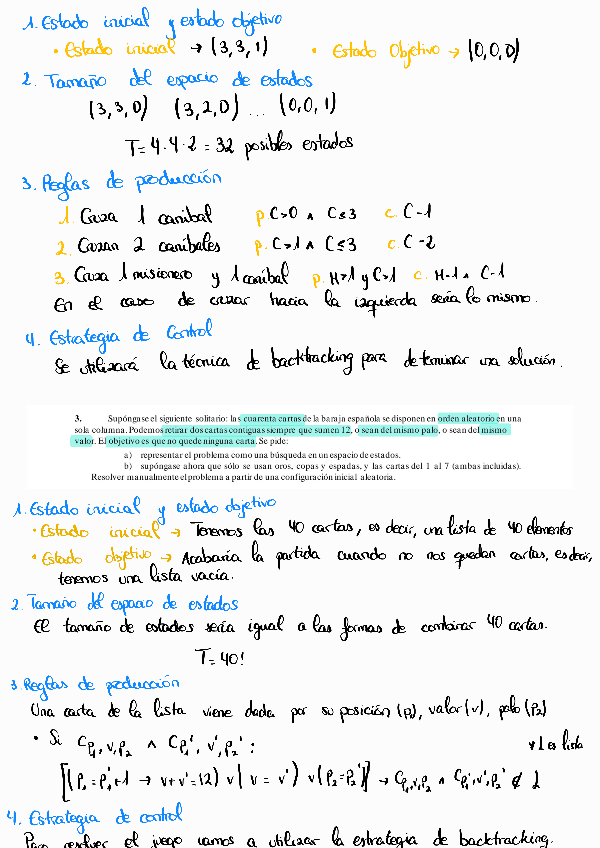 1. Estado inicial y estado objetivo
• Estado inicial → (3,3,1) • Estado Objetivo → (0,0,0)
2. Tamaño del espacio de estados
(3,3,0) (3,2,0) ... (0,0,1)
T=4·4·2=32 posibles estados
3. Reglas de producción
1. Cruza 1 canibal p. C>0 ∧ C≤3 c. C-1
2. Cruzan 2 canibales p. C>1 ∧ C≤3 c. C-2
3. Cruza 1 misionero y 1 canibal p. M>1 y C>1 c. M-1 ∧ C-1
En el caso de cruzar hacia la izquierda seria lo mismo.
4. Estrategia de Control
Se utilizará la técnica de backtracking para determinar una solución.
3. Supóngase el siguiente solitario: las cuarenta cartas de la baraja española se disponen en orden aleatorio en una
sola columna. Podemos retirar dos cartas contiguas siempre que sumen 12, o sean del mismo palo, o sean del mismo
valor. El objetivo es que no quede ninguna carta. Se pide:
a) representar el problema como una búsqueda en un espacio de estados.
b) supóngase ahora que sólo se usan oros, copas y espadas, y las cartas del 1 al 7 (ambas incluidas).
Resolver manualmente el problema a partir de una configuración inicial aleatoria.
1. Estado inicial y estado objetivo
• Estado inicial → Tenemos las 40 cartas, es decir, una lista de 40 elementos
• Estado objetivo → Acabaría la partida cuando no nos quedan cartas, es decir,
tenemos una lista vacía.
2. Tamaño del espacio de estados
El tamaño de estados seria igual a las formas de combinar 40 cartas.
T=40!
3. Reglas de producción
Una carta de la lista viene dada por su posición (p₁), valor (v), palo (p₂)
• Si C p₁,v,p₂ ∧ C p₁',v',p₂' : * L es lista
[(p₁=p₁'+1 → v+v'=12) v (v=v') v (p₂=p₂')] → C p₁,v,p₂ ∧ C p₁',v',p₂' ∉ L
4. Estrategia de control
Para resolver el juego vamos a utilizar la estrategia de backtracking.